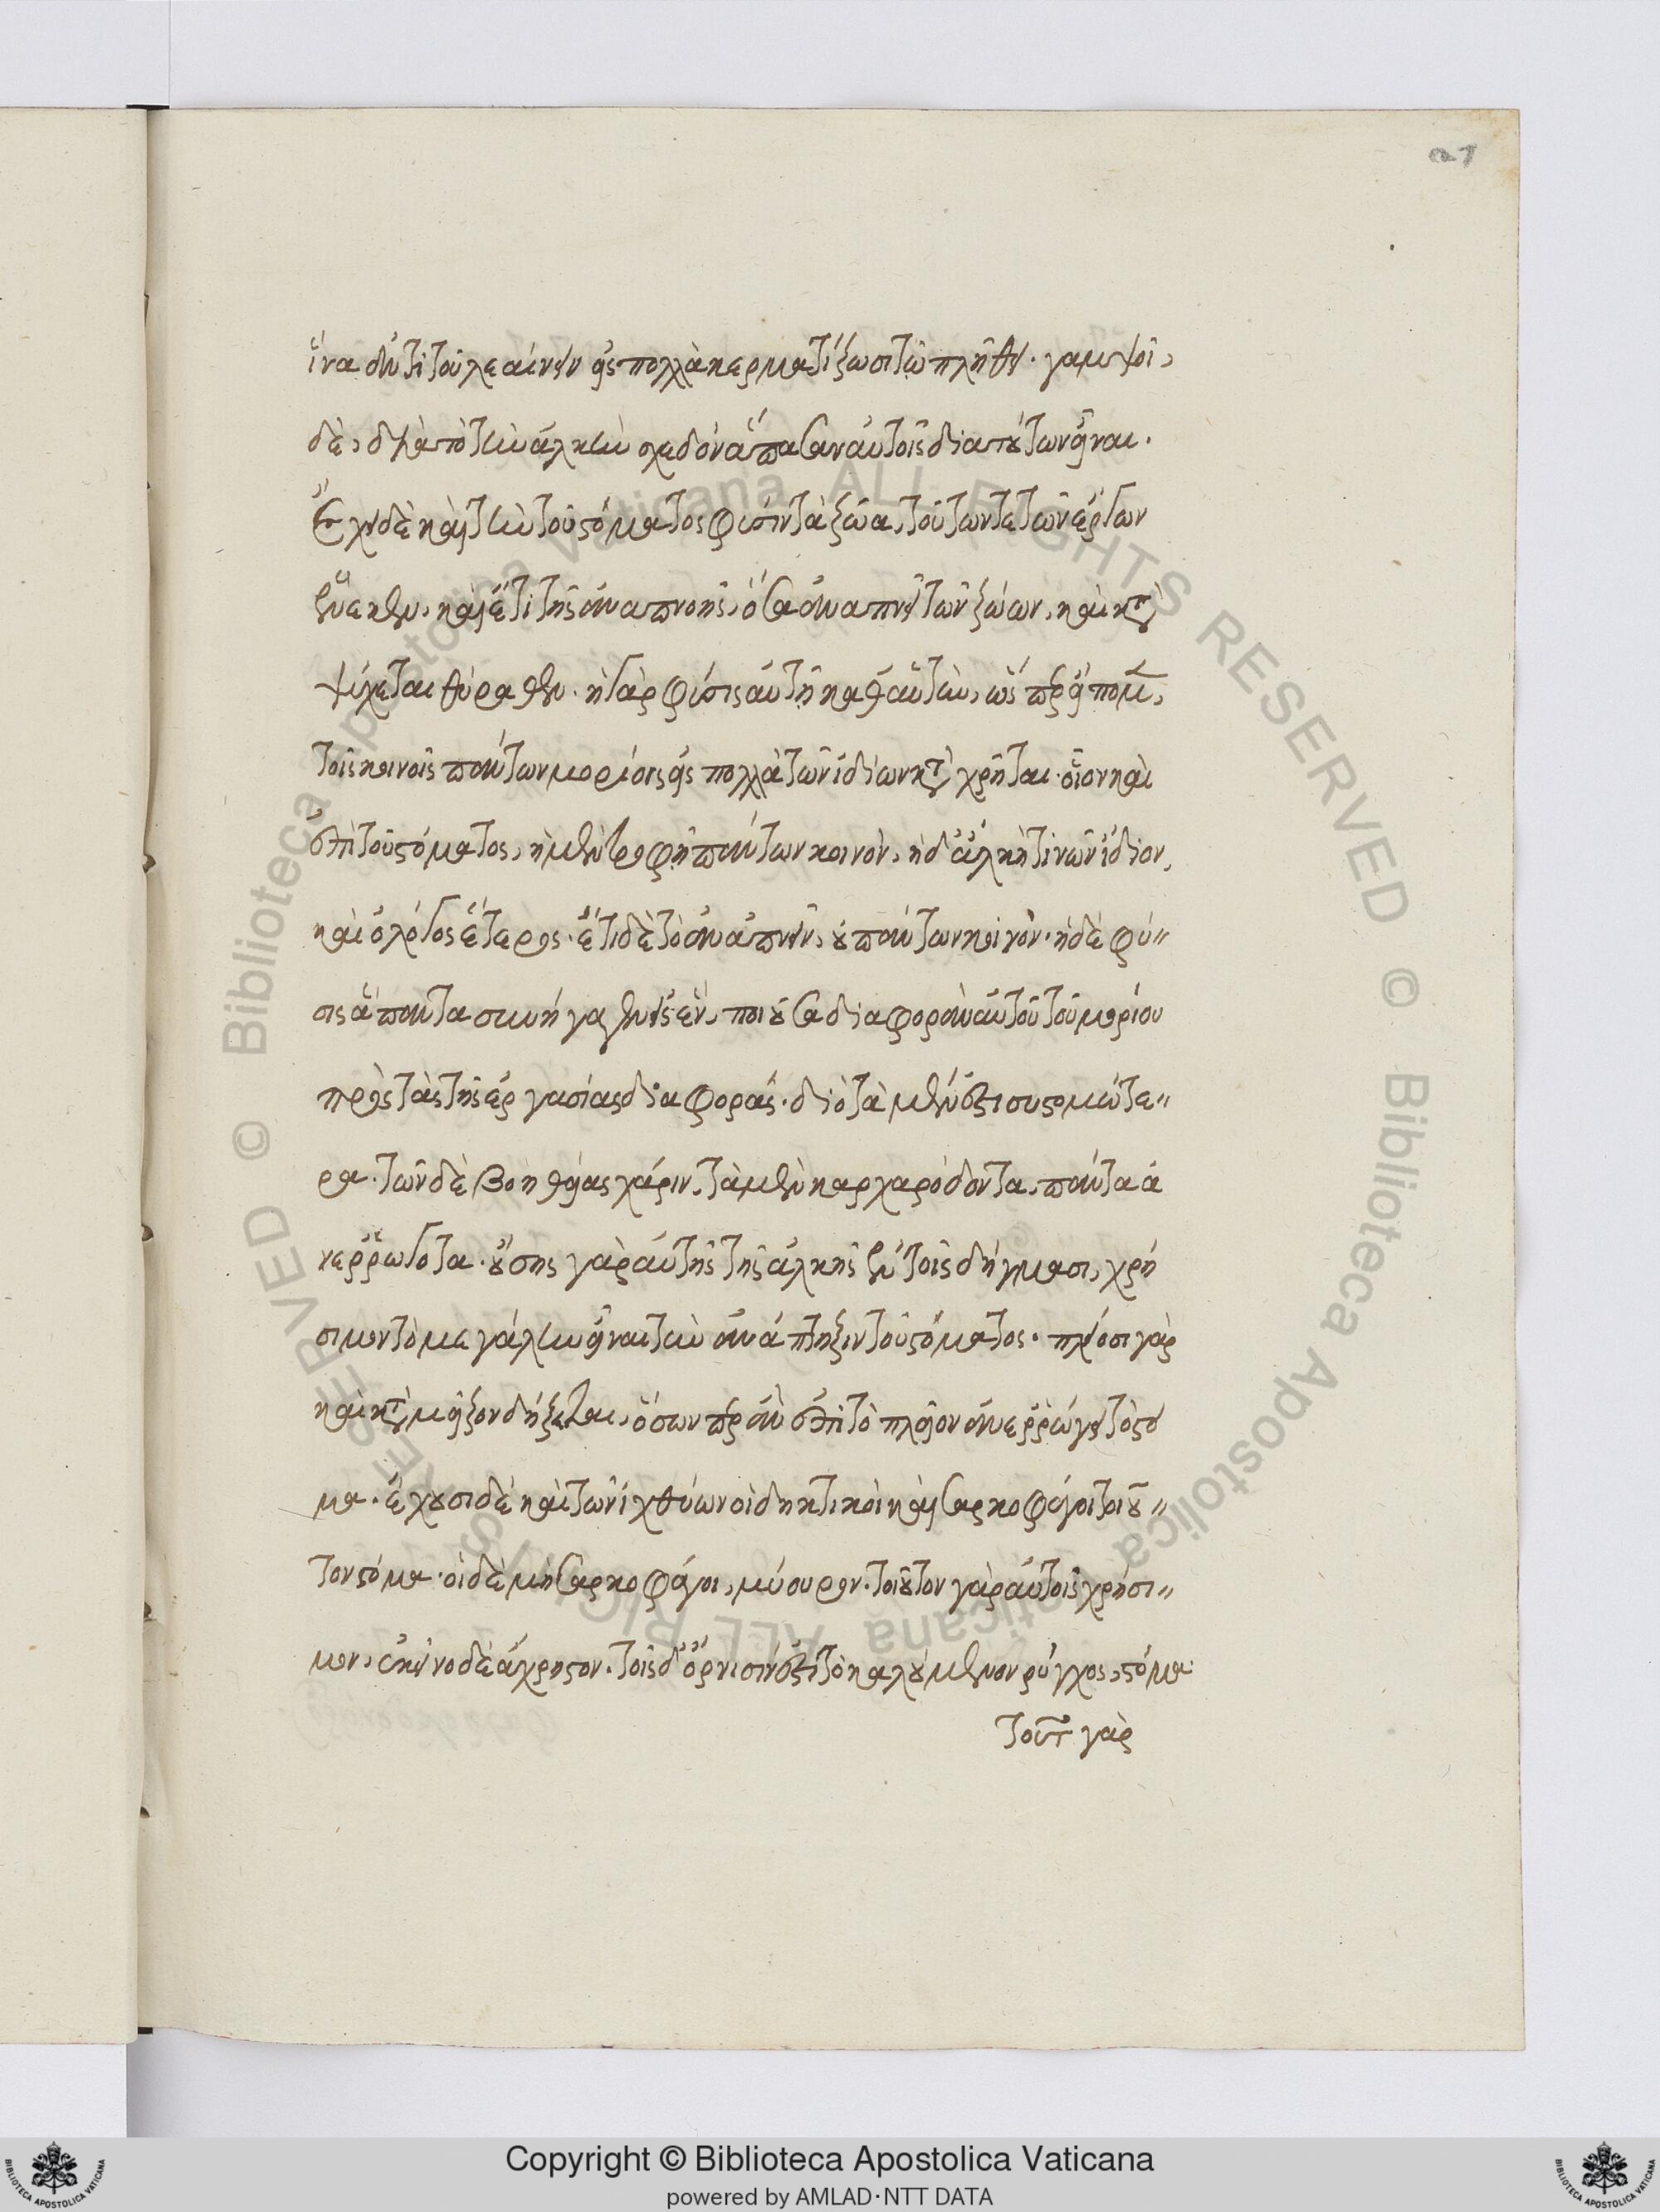 27
ἵνα ἀντὶ τοῦ λεαίνειν εἰς πολλὰ κερματίζωσι τῷ πλήθει· γαμψοὶ,
δὲ, διὰ τὸ τὴν ἀλκὴν σχεδὸν ἅπασαν αὐτοῖς διὰ τούτων εἶναι.
Ἔχει δὲ καὶ τὴν τοῦ στόματος φύσιν τὰ ζῷα, τούτων τε τῶν ἔργων
ἕνεκεν, καὶ ἔτι τῆς ἀναπνοῆς, ὅσα ἀναπνεῖ τῶν ζῴων, καὶ κατα
ψύχεται θύραθεν. ἡ γὰρ φύσις αὐτὴ καθ' αὑτὴν, ὥσπερ εἴπομεν,
τοῖς κοινοῖς πάντων μορίοις εἰς πολλὰ τῶν ἰδίων καταχρῆται· οἷον καὶ
ἐπὶ τοῦ στόματος, ἡ μὲν τροφὴ πάντων κοινὸν, ἡ δ' ἀλκὴ τινῶν ἴδιον,
καὶ ὁ λόγος ἕτερος· ἔτι δὲ τὸ ἀναπνεῖν, οὐ πάντων κοινόν· ἡ δὲ φύ〃
σις ἅπαντα συνήγαγεν εἰς ἓν, ποιοῦσα διαφορὰν αὐτοῦ τοῦ μορίου
πρὸς τὰς τῆς ἐργασίας διαφοράς. διὸ τὰ μέν ἐστι συστομώτε〃
ρα. τῶν δὲ βοηθείας χάριν, τὰ μὲν καρχαρόδοντα, πάντα ἀ
νερρωγότα. οὔσης γὰρ αὐτῆς τῆς ἀλκῆς ἐν τοῖς δήγμασι, χρή
σιμον τὸ μεγάλην εἶναι τὴν ἀνάπτηξιν τοῦ στόματος. πλείοσι γὰρ
καὶ κατὰ μεῖζον δήξεται, ὅσωνπερ ἂν ἐπὶ τὸ πλεῖον ἀνερρώγει τὸ στό
μα. ἔχουσι δὲ καὶ τῶν ἰχθύων οἱ δηκτικοὶ καὶ σαρκοφάγοι τοιοῦ〃
τον στόμα. οἱ δὲ μὴ σαρκοφάγοι, μύουρον. τοιοῦτον γὰρ αὐτοῖς χρήσι〃
μον, ἐκεῖνο δὲ ἄχρηστον. τοῖς δ' ὄρνισίν ἐστι τὸ καλούμενον ῥύγχος, στόμα·
τοῦτο γὰρ
Copyright © Biblioteca Apostolica Vaticana
powered by AMLAD·NTT DATA